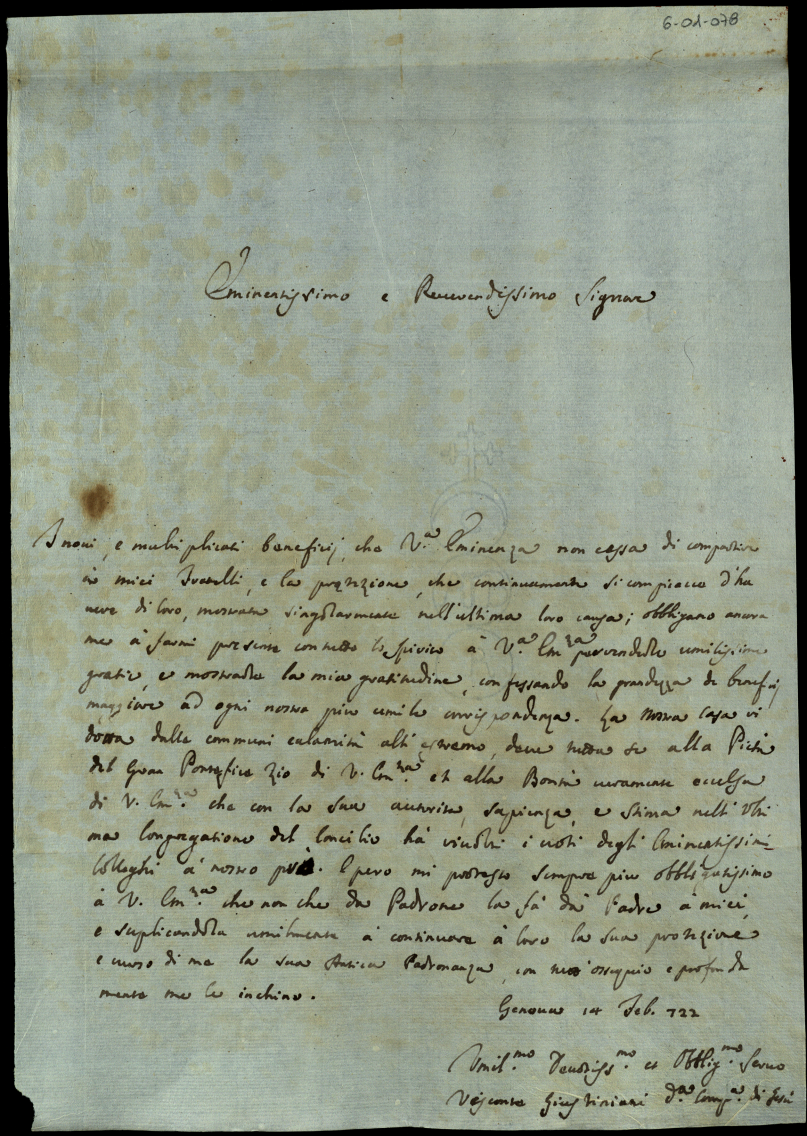 6-01-078
Eminentissimo e Reverendissimo Signore
I novi, e multiplicati beneficij, che V.ᵃ Eminenza non cessa di compartire
à miei Fratelli, e la protezione, che continuamente si compiacce d'ha
vere di loro, mostrata singolarmente nell'ultima loro causa; obbligano ancora
me à farmi presente con tutto lo spirito à V.ᵃ Em.ᶻᵃ per renderle umilissime
gratie, e mostrarle la mia gratitudine, confessando la grandezza de benefij
maggiore ad ogni nostra piu umile corrispondenza. La nostra Casa ri
dotta dalle communi calamità all'estremo, deve tutta se alla Pietà
del Gran Pontefice Zio di V. Em.ᶻᵃ et alla Bontà veramente eccelsa
di V. Em.ᶻᵃ che con la sua autorità, sapienza, e stima nell'Ulti
ma Congregatione del Concilio hà rivolti i voti degli Eminentissimi
Colleghi a nostro prò. E pero mi protesto sempre piu obbligatissimo
à V. Em.ᶻᵃ che non che da Padrone la fà da Padre a miei,
e suplicandola umilmente à continuare à loro la sua protezione
e verso di me la sua Antica Padronanza, con tutt'ossequio e profonda
mente me le inchino.
Genova 14 Feb. 722
Umil.ᵐᵒ Devotiss.ᵐᵒ et Obblig.ᵐᵒ Servo
Visconte Giustiniani d.ᵃ Comp.ᵃ di Gesù